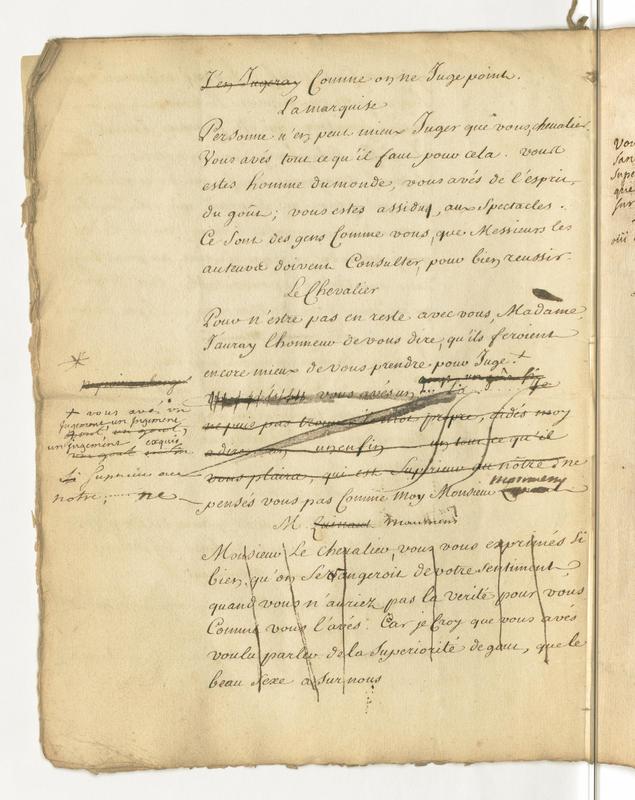 J'en Jugeray Comme on ne Juge point.
La marquise
Personne n'en peut mieux Juger que vous, chevalier.
Vous avés tout ce qu'il faut pour cela. vous
estes homme du monde, vous avés de l'esprit,
du goût; vous estes assidu, aux Spectacles.
Ce Sont des gens Comme vous, que Messieurs les
auteurs doivent Consulter, pour bien reussir.
Le Chevalier
Pour n'estre pas en reste avec vous, Madame,
J'auray l'honneur de vous dire, qu'ils feroient
encore mieux de vous prendre pour Juge. +
vous avés un
ne puis pas trouver le mot propre, aidés moy
a dire, un enfin un tout ce qu'il
vous plaira, qui est Superieur au nôtre. ne
pensés vous pas Comme moy Monsieur monmeny
M. monmeny
Monsieur Le chevalier, vous vous exprimés Si
bien, qu'on Se rangeroit de votre Sentiment,
quand vous n'auriez pas la verité pour vous
Comme vous l'avés. Car je Croy que vous avés
voulu parler de la Superiorité de gout, que le
beau Sexe a Sur nous
+ vous avés un
jugement, un jugement
un jugement, exquis
Superieur au
notre, ne